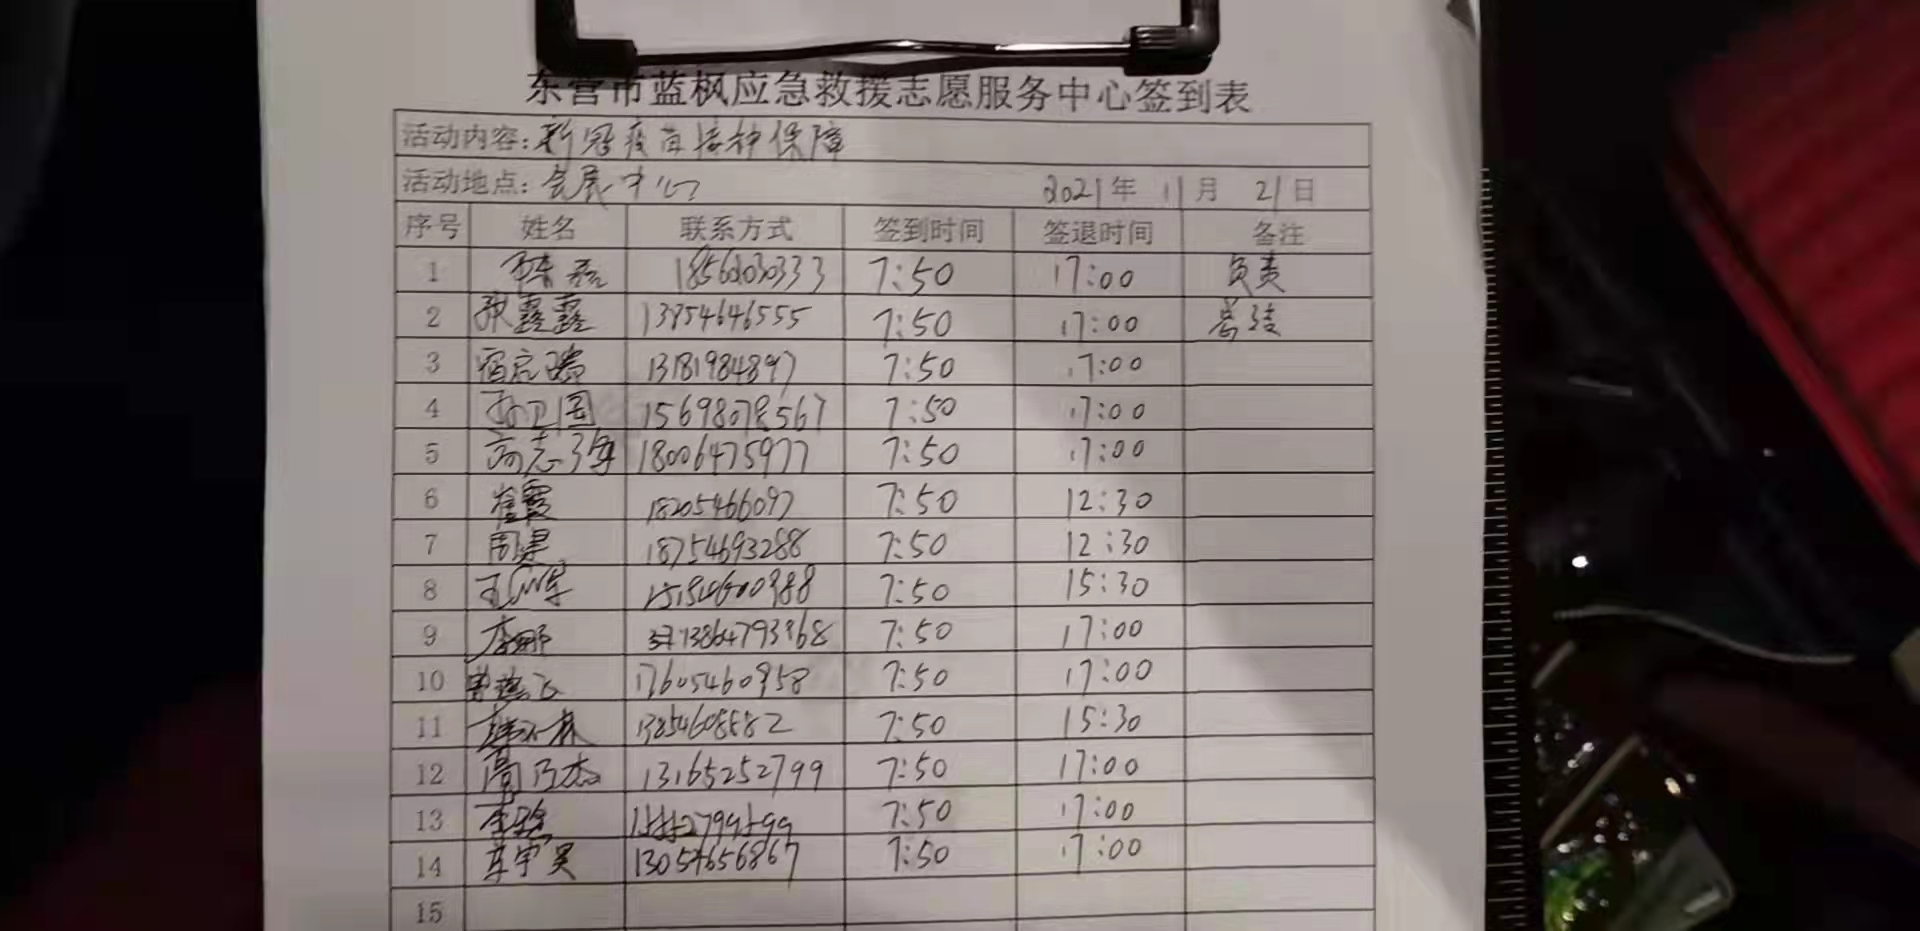 东营市蓝枫应急救援志愿服务中心签到表
活动内容：新冠疫苗接种保障
活动地点：会展中心 2021年 11月 21日
序号 姓名 联系方式 签到时间 签退时间 备注
1 18562030333 7:50 17:00 负责
2 张露露 13854646555 7:50 17:00 总结
3 宿启瑞 13181984897 7:50 17:00
4 孙卫国 15698078567 7:50 17:00
5 高志海 18006475977 7:50 17:00
6 崔霞 18205466097 7:50 12:30
7 周建 18754693288 7:50 12:30
8 7:50 15:30
9 李娜 7:50 17:00
10 17605460958 7:50 17:00
11 7:50 15:30
12 周乃杰 13165252799 7:50 17:00
13 7:50 17:00
14 7:50 17:00
15